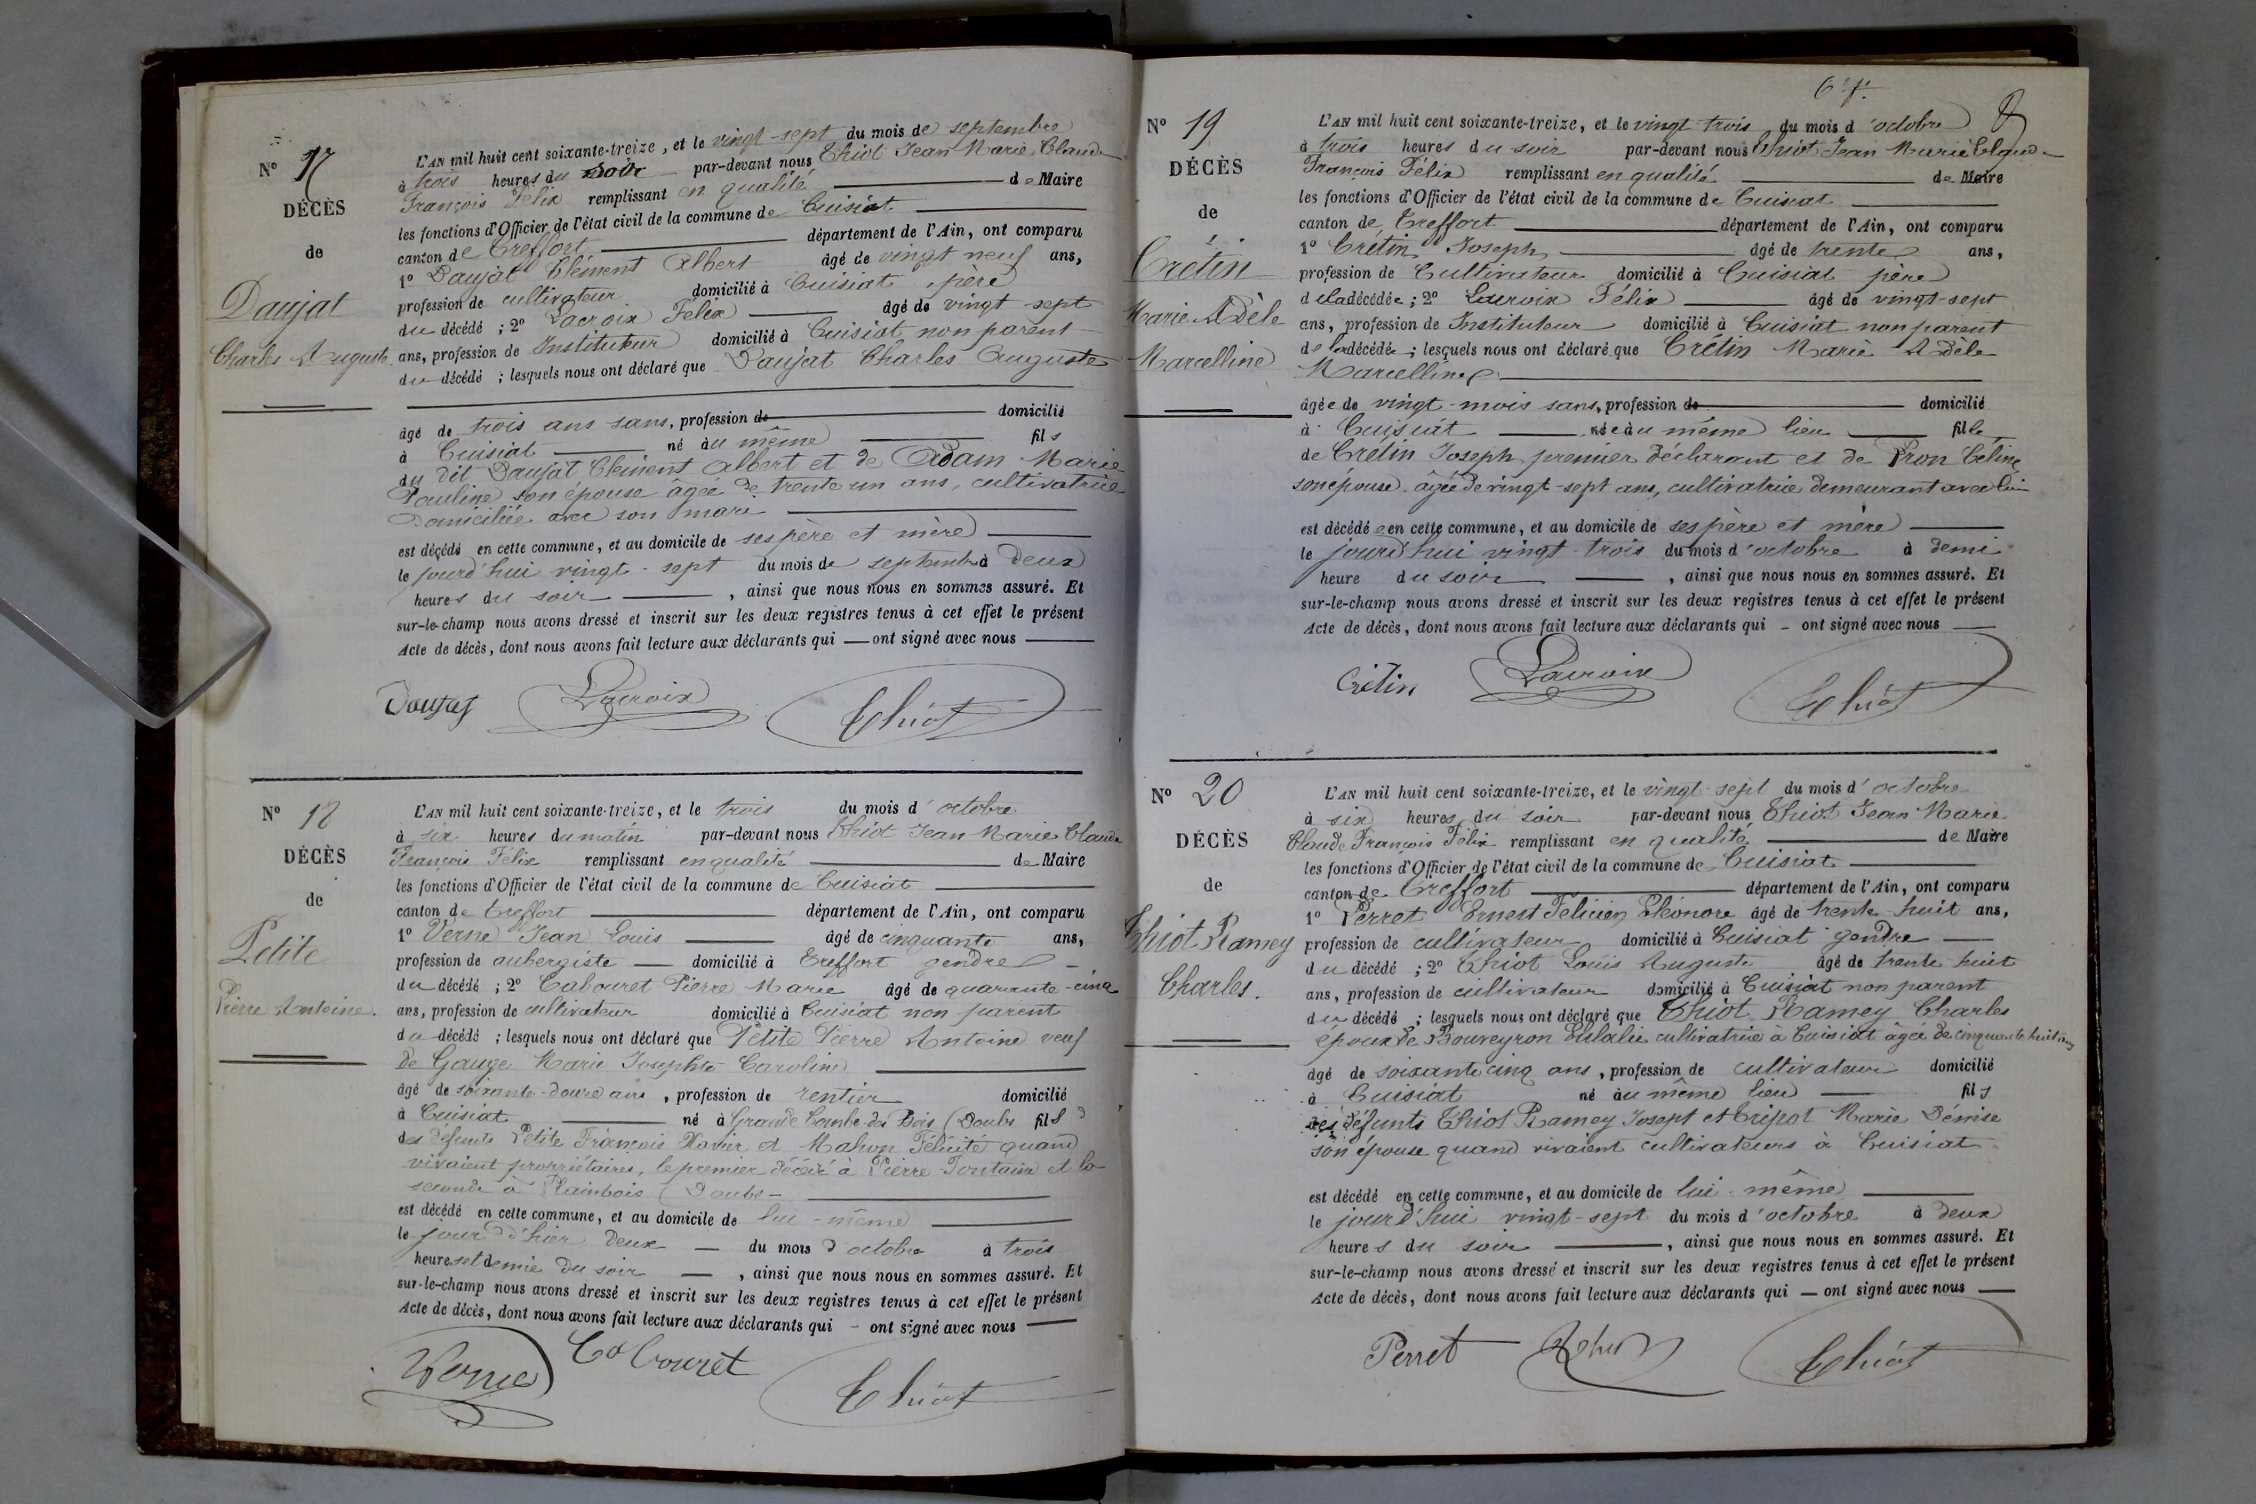 N° 17
DÉCÈS
de
Daujat
Charles Auguste.
L'AN mil huit cent soixante-treize, et le vingt-sept du mois de septembre
à trois heures du soir par-devant nous Thiot Jean Marie Claude
François Félix remplissant en qualité de Maire
les fonctions d'Officier de l'état civil de la commune de Cuisiat
canton de Treffort département de l'Ain, ont comparu
1° Daujat Clément Albert âgé de vingt neuf ans,
profession de cultivateur domicilié à Cuisiat, père
du décédé ; 2° Lacroix Félix âgé de vingt-sept
ans, profession de Instituteur domicilié à Cuisiat non parent
du décédé ; lesquels nous ont déclaré que Daujat Charles Auguste
âgé de trois ans sans, profession de domicilié
à Cuisiat né au même fils
du dit Daujat Clément Albert et de Adam Marie
Pauline son épouse âgée de trente un ans, cultivatrice
Domiciliée avec son mari
est décédé en cette commune, et au domicile de ses père et mère
le jourd'hui vingt-sept du mois de septembre à deux
heures du soir , ainsi que nous nous en sommes assuré. Et
sur-le-champ nous avons dressé et inscrit sur les deux registres tenus à cet effet le présent
Acte de décès, dont nous avons fait lecture aux déclarants qui ont signé avec nous
Daujat Lacroix Thiot
N° 18
DÉCÈS
de
Petite
Pierre Antoine.
L'AN mil huit cent soixante-treize, et le trois du mois d'octobre
à six heures du matin par-devant nous Thiot Jean Marie Claude
François Félix remplissant en qualité de Maire
les fonctions d'Officier de l'état civil de la commune de Cuisiat
canton de Treffort département de l'Ain, ont comparu
1° Verne Jean Louis âgé de cinquante ans,
profession de aubergiste domicilié à Treffort gendre
du décédé ; 2° Cabouret Pierre Marie âgé de quarante-cinq
ans, profession de cultivateur domicilié à Cuisiat non parent
du décédé ; lesquels nous ont déclaré que Petite Pierre Antoine veuf
de Gauze Marie Josephte Caroline
âgé de soixante-douze ans, profession de rentier domicilié
à Cuisiat né à Grande Combe des Bois (Doubs fils
des défunts Petite François Xavier et Mahon Félicité quand
vivaient propriétaires, le premier décédé à Pierre-Fontaine et la
seconde à Plainbois (Doubs-
est décédé en cette commune, et au domicile de lui-même
le jour d'hier deux du mois d'octobre à trois
heures et demie du soir , ainsi que nous nous en sommes assuré. Et
sur-le-champ nous avons dressé et inscrit sur les deux registres tenus à cet effet le présent
Acte de décès, dont nous avons fait lecture aux déclarants qui ont signé avec nous
Verne Cabouret Thiot
N° 19
DÉCÈS
de
Crétin
Marie Adèle
Marcelline
L'AN mil huit cent soixante-treize, et le vingt trois du mois d'octobre
à trois heures du soir par-devant nous Thiot Jean Marie Claude
François Félix remplissant en qualité de Maire
les fonctions d'Officier de l'état civil de la commune de Cuisiat
canton de Treffort département de l'Ain, ont comparu
1° Crétin Joseph âgé de trente ans,
profession de Cultivateur domicilié à Cuisiat père
de la décédée ; 2° Lacroix Félix âgé de vingt-sept
ans, profession de Instituteur domicilié à Cuisiat non parent
de la décédée ; lesquels nous ont déclaré que Crétin Marie Adèle
Marcelline
âgée de vingt-mois sans, profession de domicilié
à Cuisiat née au même lieu fille
de Crétin Joseph premier déclarant et de Pron Céline
son épouse âgée de vingt-sept ans, cultivatrice demeurant avec lui
est décédée en cette commune, et au domicile de ses père et mère
le jourd'hui vingt-trois du mois d'octobre à demi
heure du soir , ainsi que nous nous en sommes assuré. Et
sur-le-champ nous avons dressé et inscrit sur les deux registres tenus à cet effet le présent
Acte de décès, dont nous avons fait lecture aux déclarants qui ont signé avec nous
Crétin Lacroix Thiot
N° 20
DÉCÈS
de
Thiot Ramey
Charles.
L'AN mil huit cent soixante-treize, et le vingt-sept du mois d'octobre
à six heures du soir par-devant nous Thiot Jean Marie
Claude François Félix remplissant en qualité de Maire
les fonctions d'Officier de l'état civil de la commune de Cuisiat
canton de Treffort département de l'Ain, ont comparu
1° Perret Ernest Félicien Eléonore âgé de trente-huit ans,
profession de cultivateur domicilié à Cuisiat gendre
du décédé ; 2° Thiot Louis Auguste âgé de trente huit
ans, profession de cultivateur domicilié à Cuisiat non parent
du décédé ; lesquels nous ont déclaré que Thiot Ramey Charles
époux de Bouveyron Eulalie cultivatrice à Cuisiat âgée de cinquante huit ans
âgé de soixante cinq ans, profession de cultivateur domicilié
à Cuisiat né au même lieu fils
des défunts Thiot Ramey Josept et Marie Dénise
son épouse quand vivaient cultivateurs à Cuisiat
est décédé en cette commune, et au domicile de lui-même
le jourd'hui vingt-sept du mois d'octobre à deux
heures du soir , ainsi que nous nous en sommes assuré. Et
sur-le-champ nous avons dressé et inscrit sur les deux registres tenus à cet effet le présent
Acte de décès, dont nous avons fait lecture aux déclarants qui ont signé avec nous
Perret Thiot